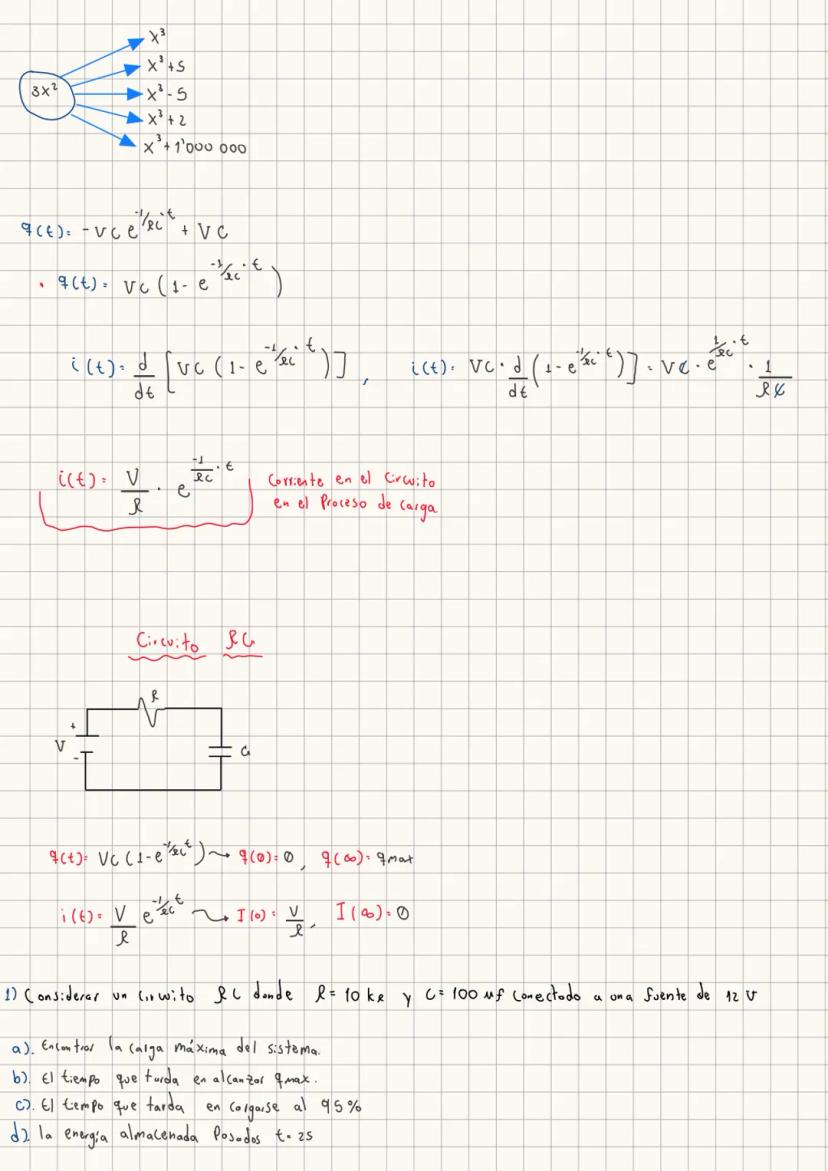 3x²
x³
x³+5
x³-5
x³+2
x³+1'000 000
q(t)= -VC e^(-1/RC·t) + VC
q(t)= VC (1- e^(-1/RC·t))
i(t)= d/dt [VC (1- e^(-1/RC·t))], i(t)= VC· d/dt (1-e^(-1/RC·t))] = VC· e^(1/RC·t) · 1/RC
i(t)= V/R · e^(-1/RC·t) Corriente en el Circuito
en el Proceso de Carga
Circuito RC
R
+
V
-
C
q(t)= VC (1-e^(-1/RC t)) → q(0)=0, q(∞)= qmax
i(t)= V/R e^(-1/RC t) → I(0)= V/R, I(∞)=0
1) Considerar un Circuito RC donde R= 10 kR y C= 100 Mf Conectado a una fuente de 12 V
a). Encontrar la carga máxima del sistema.
b). El tiempo que tarda en alcanzar qmax.
c). El tiempo que tarda en cargarse al 95%
d). la energía almacenada Pasados t= 2s